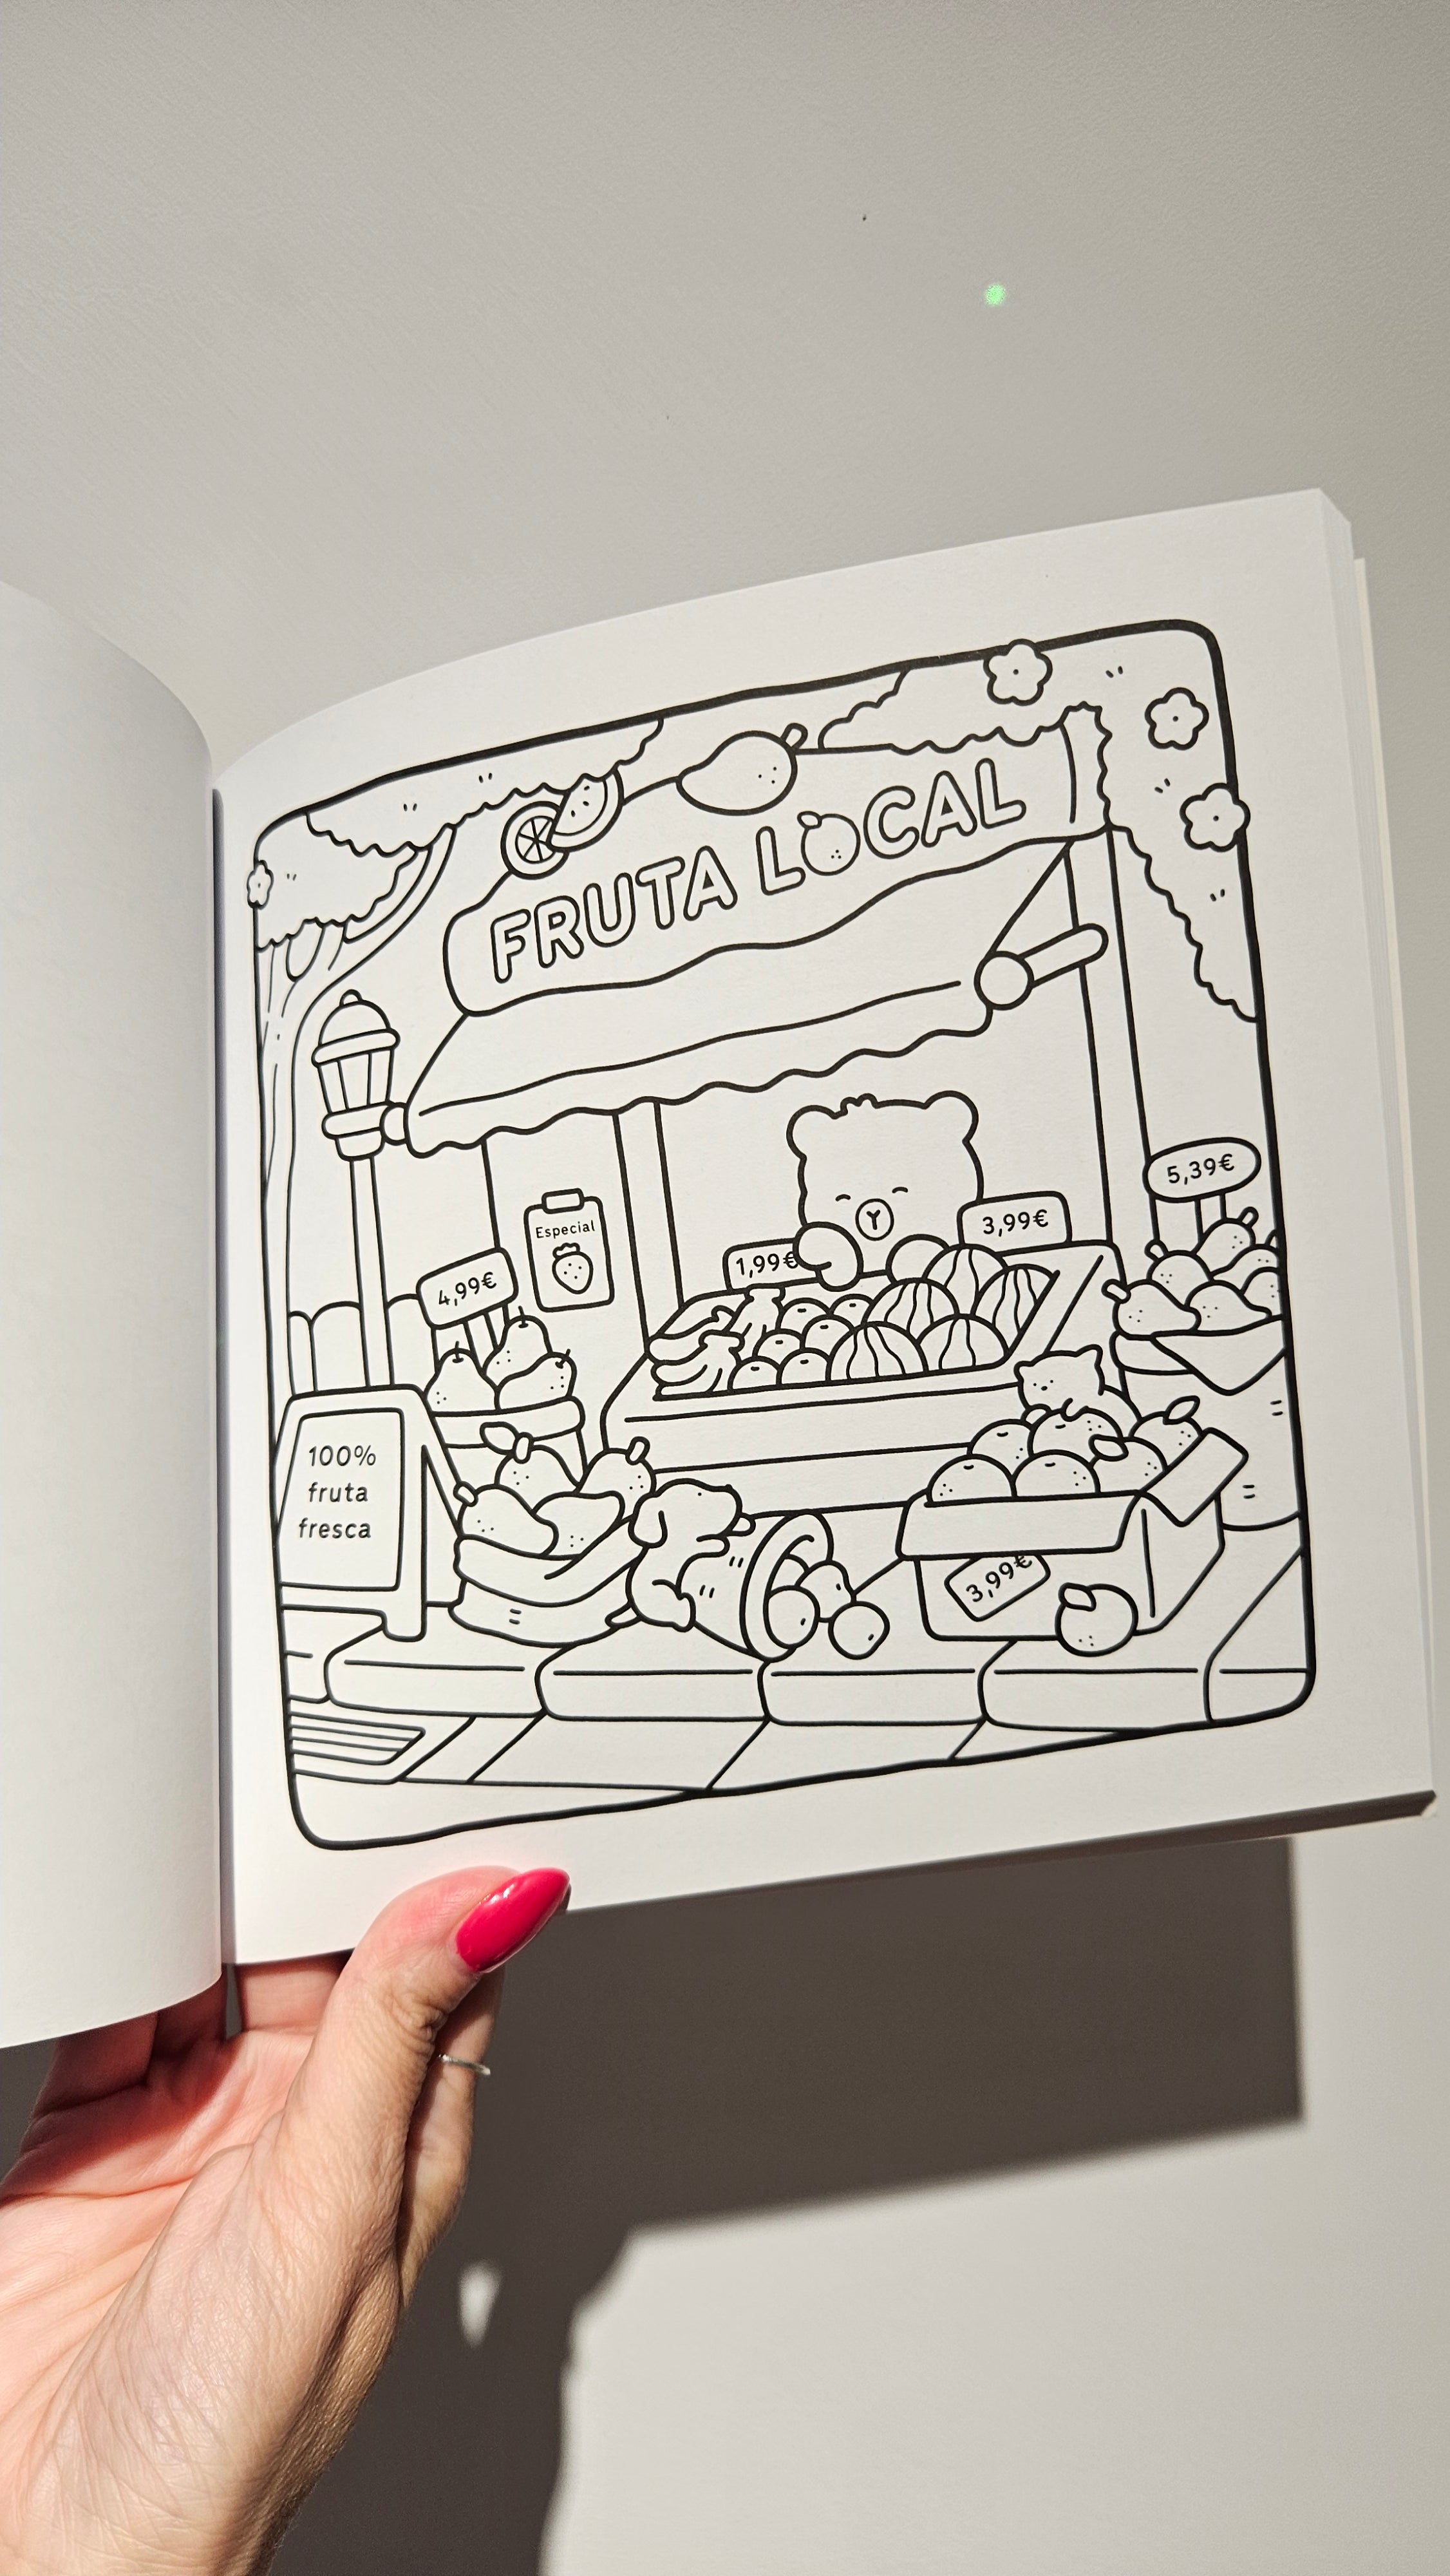 FRUTA LOCAL
5,39€
Especial
3,99€
1,99€
4,99€
100%
fruta
fresca
3,99€